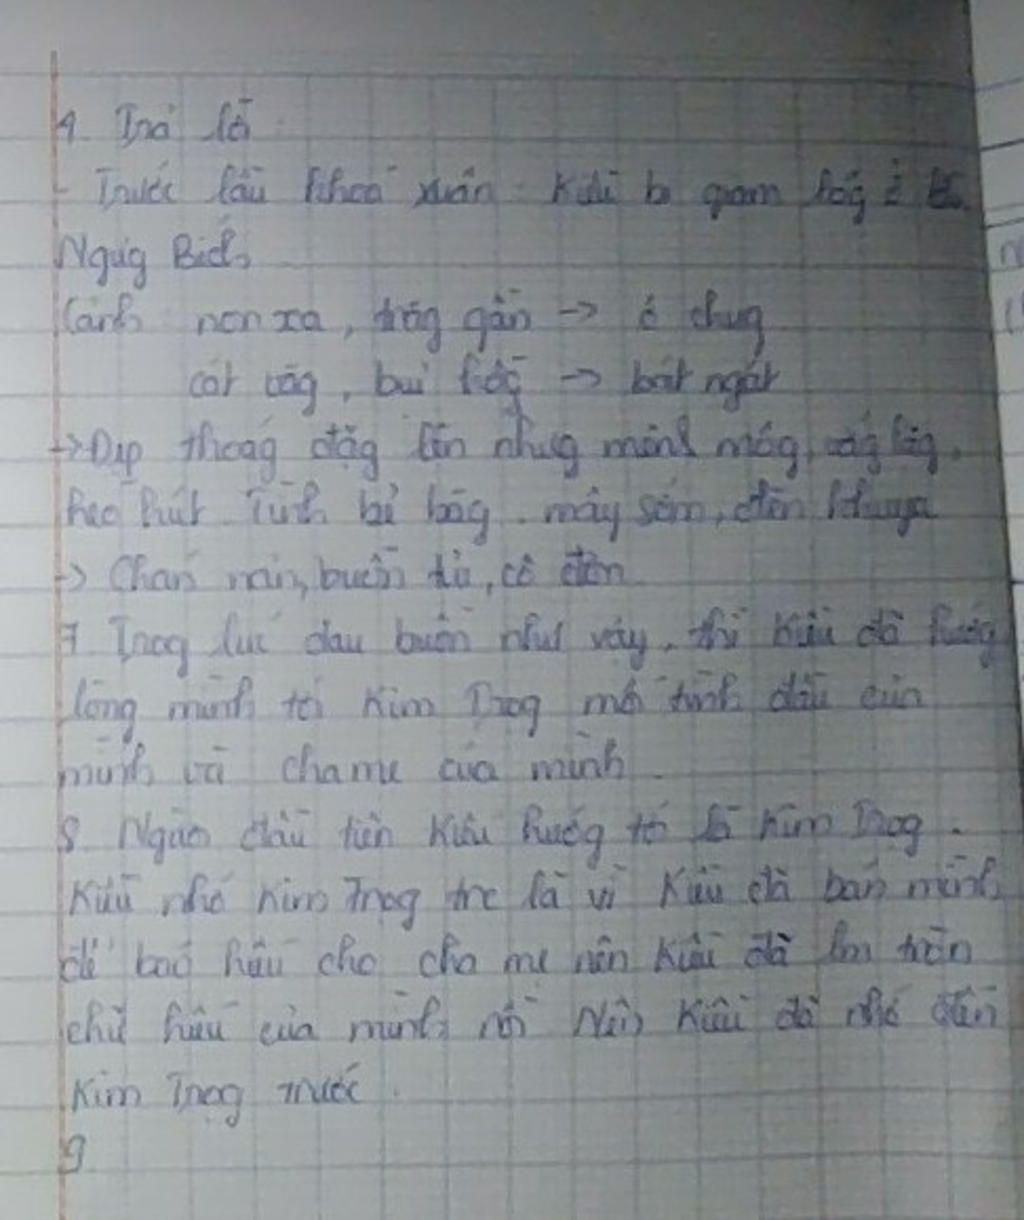 4. Trả lời
- Trước lầu Khoá xuân Kiều bị giam lỏg ở
Ngưg Bích
Cảnh non xa, trăg gần -> ở chug
cát vàg, bụi hồg -> bát ngát
-> Đẹp thoág đãg lên nhưg mênh môg,
heo hút Tình bẽ bàg. mây sớm, đèn khuya
-> Chán nản, buồn tủi, cô đơn
7 Trog lúc đau buồn như vậy, thì Kiều đã hướg
lòng mình tới Kim Trọg mối tình đầu của
mình và cha mẹ của mình.
8. Người đầu tiên Kiều hướg tới là Kim Trọg.
Kiều nhớ Kim Trọg trc là vì Kiều đã bán mình
để báo hiếu cho cha mẹ nên Kiều đã làm tròn
chữ hiếu của mình rồi Nên Kiều đã nhớ đến
Kim Trọg trước.
9